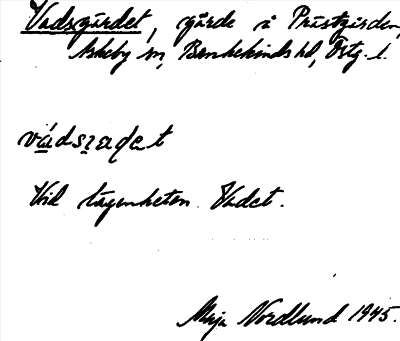 Vadsgärdet, gärde i Prästgården,
Askeby sn, Bankekinds hd, Östg. l.
Vid lägenheten Vadet.
Maja Nordlund 1945.